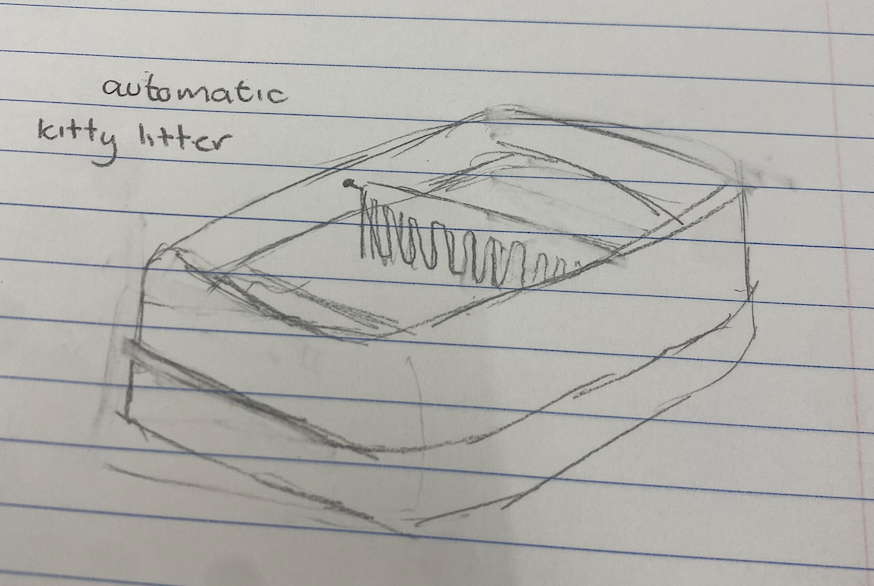 automatic
kitty litter